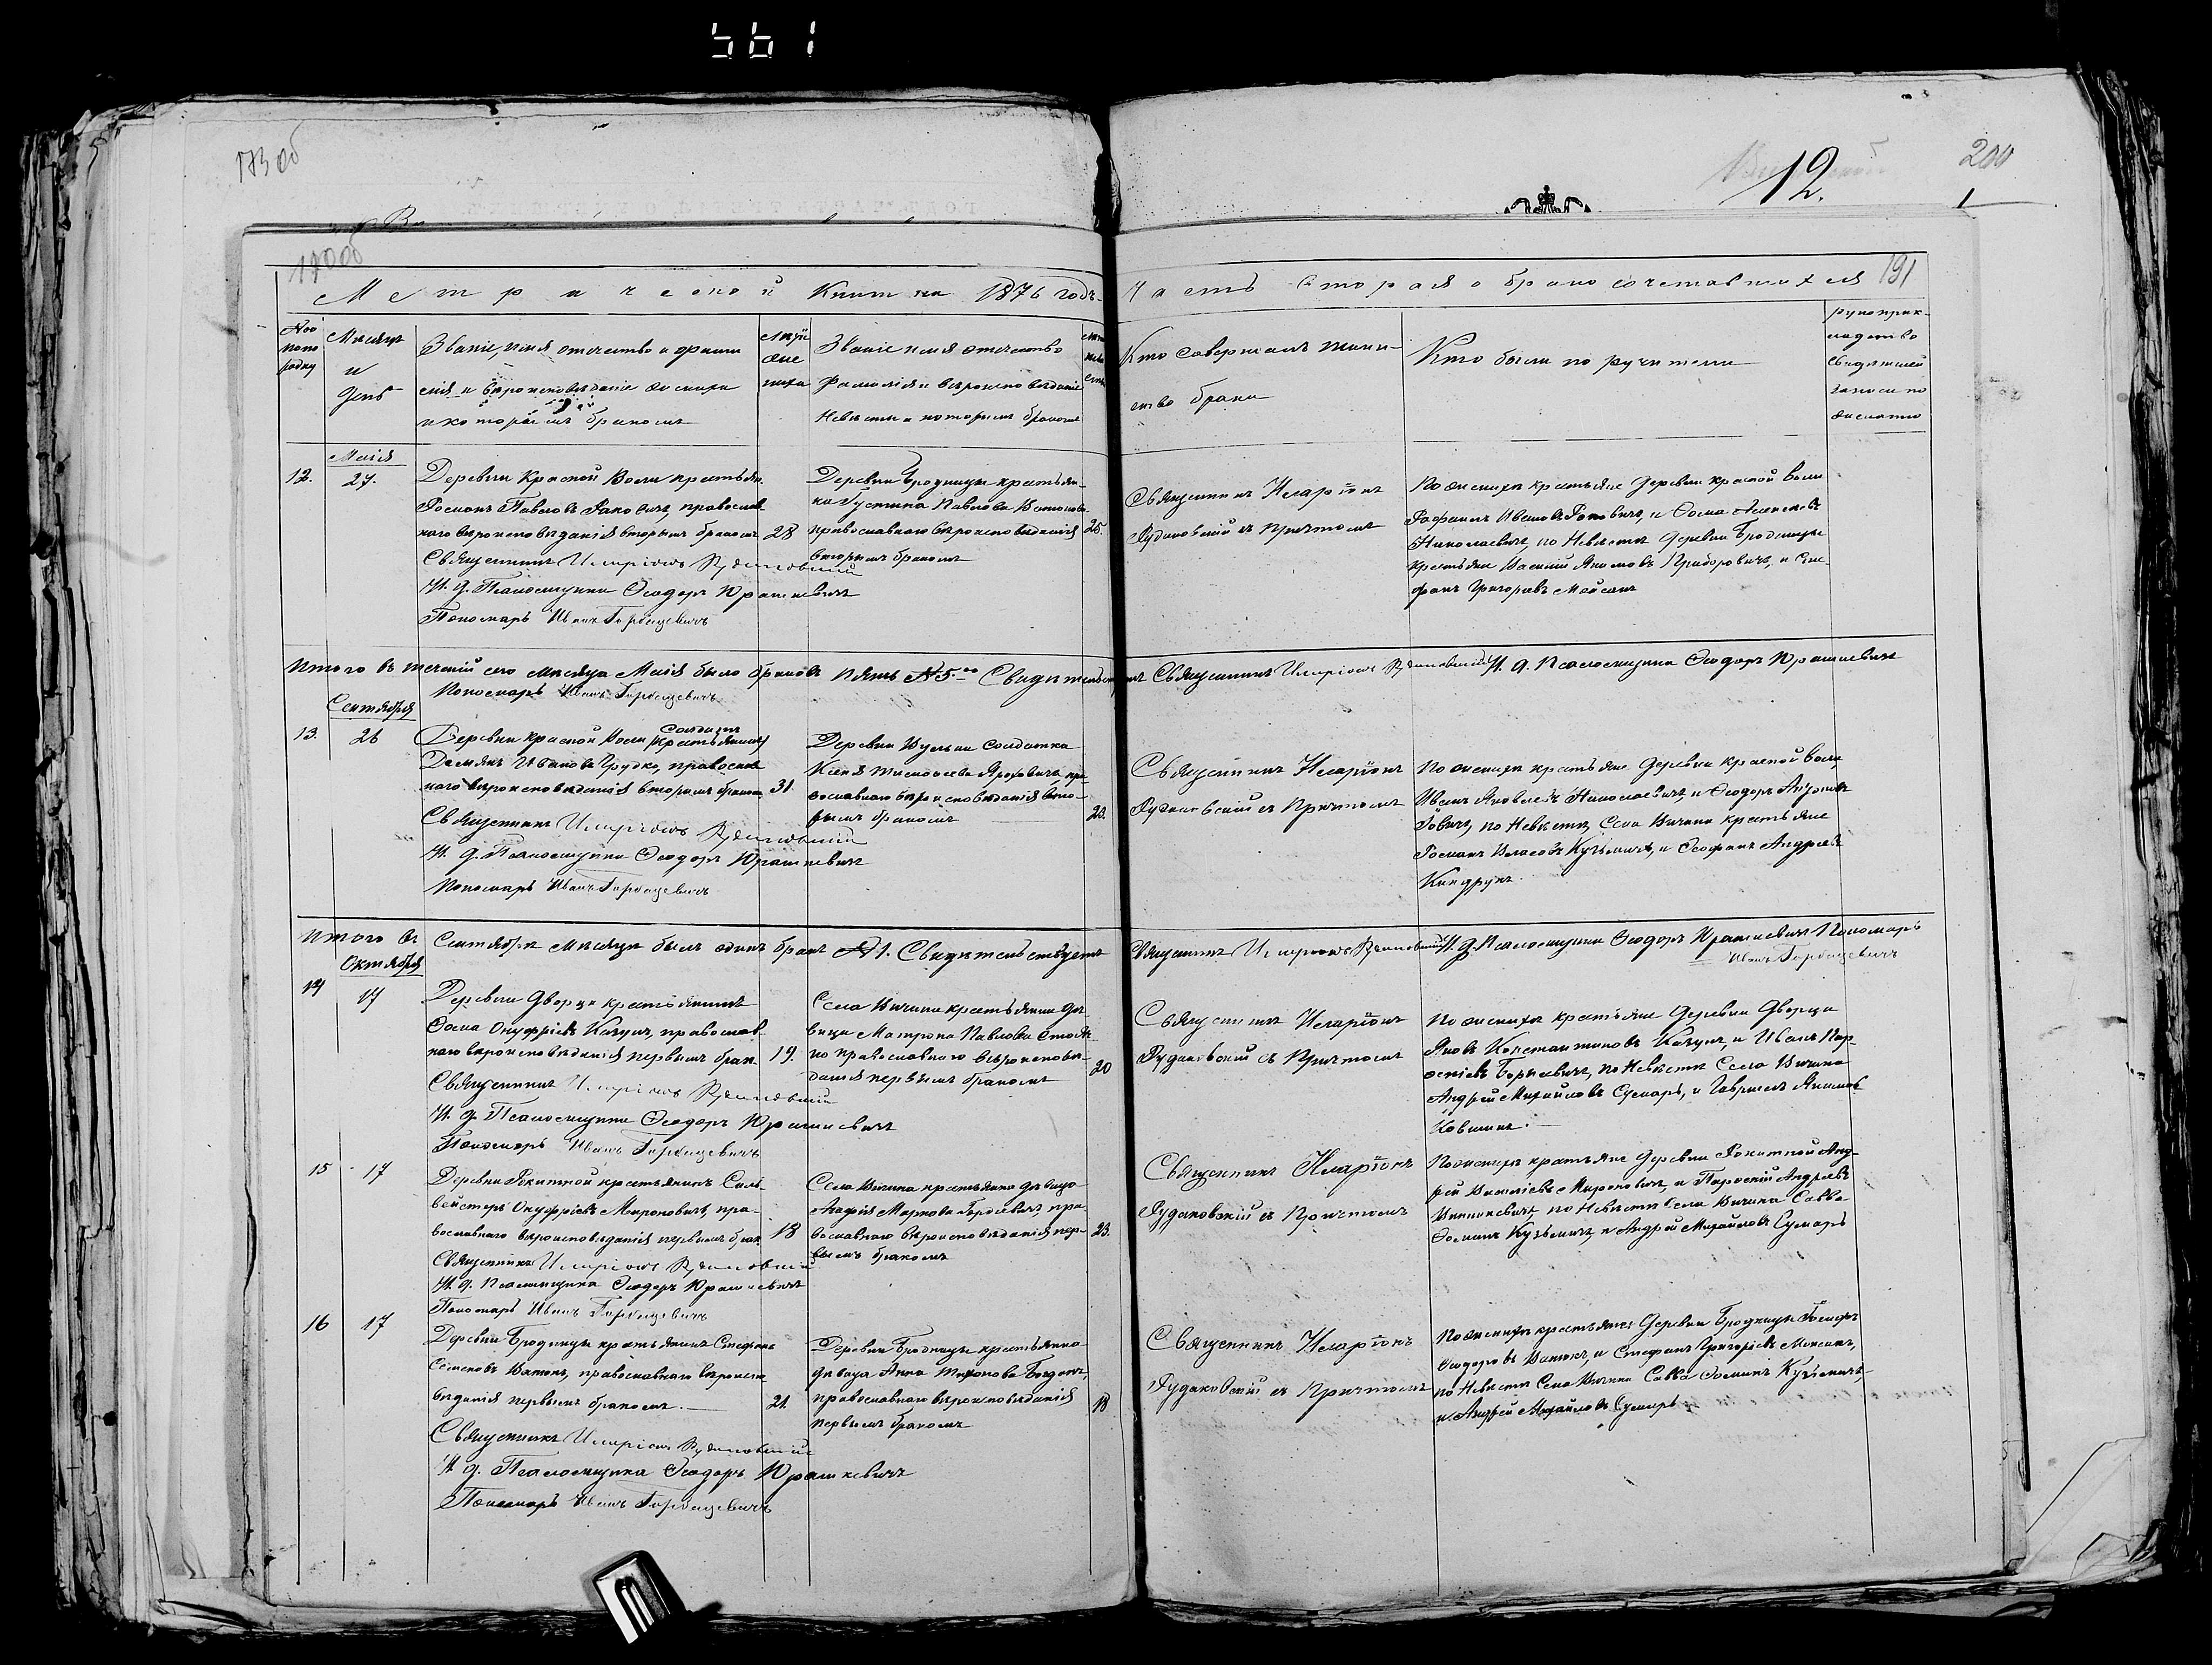 561
173 об
12.
200
190 об
191
Метрической Книги на 1876 годъ
Часть вторая о бракосочетавшихся
Месяцъ
и
День
Званіе, имя отечество и фами
лія и вѣроисповѣданіе жениха
и которымъ бракомъ
Званіе имя отечество
Фамилія и вѣроисповѣданіе
Невѣсты и которымъ бракомъ
Кто совершалъ таин-
ство брака
Кто были поручители
рукоприк-
ладство
свидѣтелей
записи по
желанію
Маія
12.
27.
Деревни Красной Воли крестьян.
Романъ Павловъ Раковичъ, православ
наго вѣроисповѣданія вторымъ бракомъ
28
Священникъ Иларіонъ Рудаковскій
И. д. Псаломщика Ѳеодоръ Юрашкевичъ
Пономарь Иванъ Горбацевичъ
Деревни Бродницы крестьян-
ка Павлова
православнаго вѣроисповѣданія
вторымъ бракомъ
25.
Священникъ Иларіонъ
Рудаковскій съ Причтомъ
По женихѣ крестьяне Деревни Красной Воли
Ивановъ Раковичъ, и Ѳома
Николаевичъ, по Невѣстѣ Деревни Бродницы
крестьяне Василій Якимовъ Приборовичъ, и Сте
фанъ Григорьевъ Мойсакъ
Итого въ теченій сего мѣсяца Маія было браковъ пять №5. Свидѣтельствуетъ Священникъ Иларіонъ Рудаковскій И. д. Псаломщика Ѳеодоръ Юрашкевичъ
Пономарь Иванъ Горбацевичъ
Сентября
13.
26
Солдатъ
Деревни Красной Воли (крестьянинъ)
Демянъ Ивановъ Грудко, православ
наго вѣроисповѣданія вторымъ бракомъ
31.
Священникъ Иларіонъ Рудаковскій
И. д. Псаломщика Ѳеодоръ Юрашкевичъ
Пономарь Иванъ Горбацевичъ
Деревни Вульки солдатка
Ксенія Тимоѳеева Яроховичъ, пра
вославнаго вѣроисповѣданія вто-
рымъ бракомъ
Священникъ Иларіонъ
Рудаковскій съ Причтомъ
По женихѣ крестьяне Деревни Красной Воли,
Иванъ Яковлевъ Николаевичъ, и Ѳеодоръ
по Невѣстѣ, Села Вичина крестьяне
Романъ Власовъ Кузьмичъ, и Ѳеофанъ Андреевъ
Кандрукъ.
Итого въ Сентябрѣ мѣсяцѣ былъ одинъ бракъ №1. Свидѣтельствуетъ Священникъ Иларіонъ Рудаковскій И. д. Псаломщика Ѳеодоръ Юрашкевичъ Пономарь
Иванъ Горбацевичъ
Октября
14
17
Деревни Дворца крестьянинъ
Ѳома Онуфріевъ Качукъ, православ-
наго вѣроисповѣданія первымъ брак.
19.
Священникъ Иларіонъ Рудаковскій
И. д. Псаломщика Ѳеодоръ Юрашкевичъ
Пономарь Иванъ Горбацевичъ
Села Вичина крестьянка дѣ-
вица Матрона Павлова
православнаго вѣроисповѣ-
данія первымъ бракомъ
20
Священникъ Иларіонъ
Рудаковскій съ Причтомъ
По женихѣ крестьяне Деревни Дворца
Яковъ Константиновъ Качукъ, и Иванъ
по Невѣстѣ Села Вичина
Андрей Михайловъ Сумаръ, и Гавріилъ Якимовъ
Ковшикъ.
15
17
Деревни Рокитной крестьянинъ Силь-
вестеръ Онуфріевъ Мироновичъ, пра-
вославнаго вѣроисповѣданія первымъ брак.
18
Священникъ Иларіонъ Рудаковскій
И. д. Псаломщика Ѳеодоръ Юрашкевичъ
Пономарь Иванъ Горбацевичъ
Села Вичина крестьянка дѣвица
Агафія Маркова пра
вославнаго вѣроисповѣданія пер-
вымъ бракомъ
23.
Священникъ Иларіонъ
Рудаковскій съ Причтомъ
По женихѣ крестьяне Деревни Рокитной Анд-
рей Василіевъ Мироновичъ, и Андреевъ
по Невѣстѣ Села Вичина Савва
Ѳоминъ Кузьмичъ, и Андрей Михайловъ Сумаръ
16
17
Деревни Бродницы крестьянинъ Стефанъ
Семеновъ православнаго вѣроиспо
вѣданія первымъ бракомъ.
21.
Священникъ Иларіонъ Рудаковскій
И. д. Псаломщика Ѳеодоръ Юрашкевичъ
Пономарь Иванъ Горбацевичъ
Деревни Бродницы крестьянка
дѣвица Анна
православнаго вѣроисповѣданія
первымъ бракомъ
18
Священникъ Иларіонъ
Рудаковскій съ Причтомъ
По женихѣ крестьяне Деревни Бродницы
Ѳеодоровъ и Стефанъ Григоріевъ Мойсакъ,
по Невѣстѣ Села Вичина Савва Ѳоминъ Кузьмичъ,
и Андрей Михайловъ Сумаръ